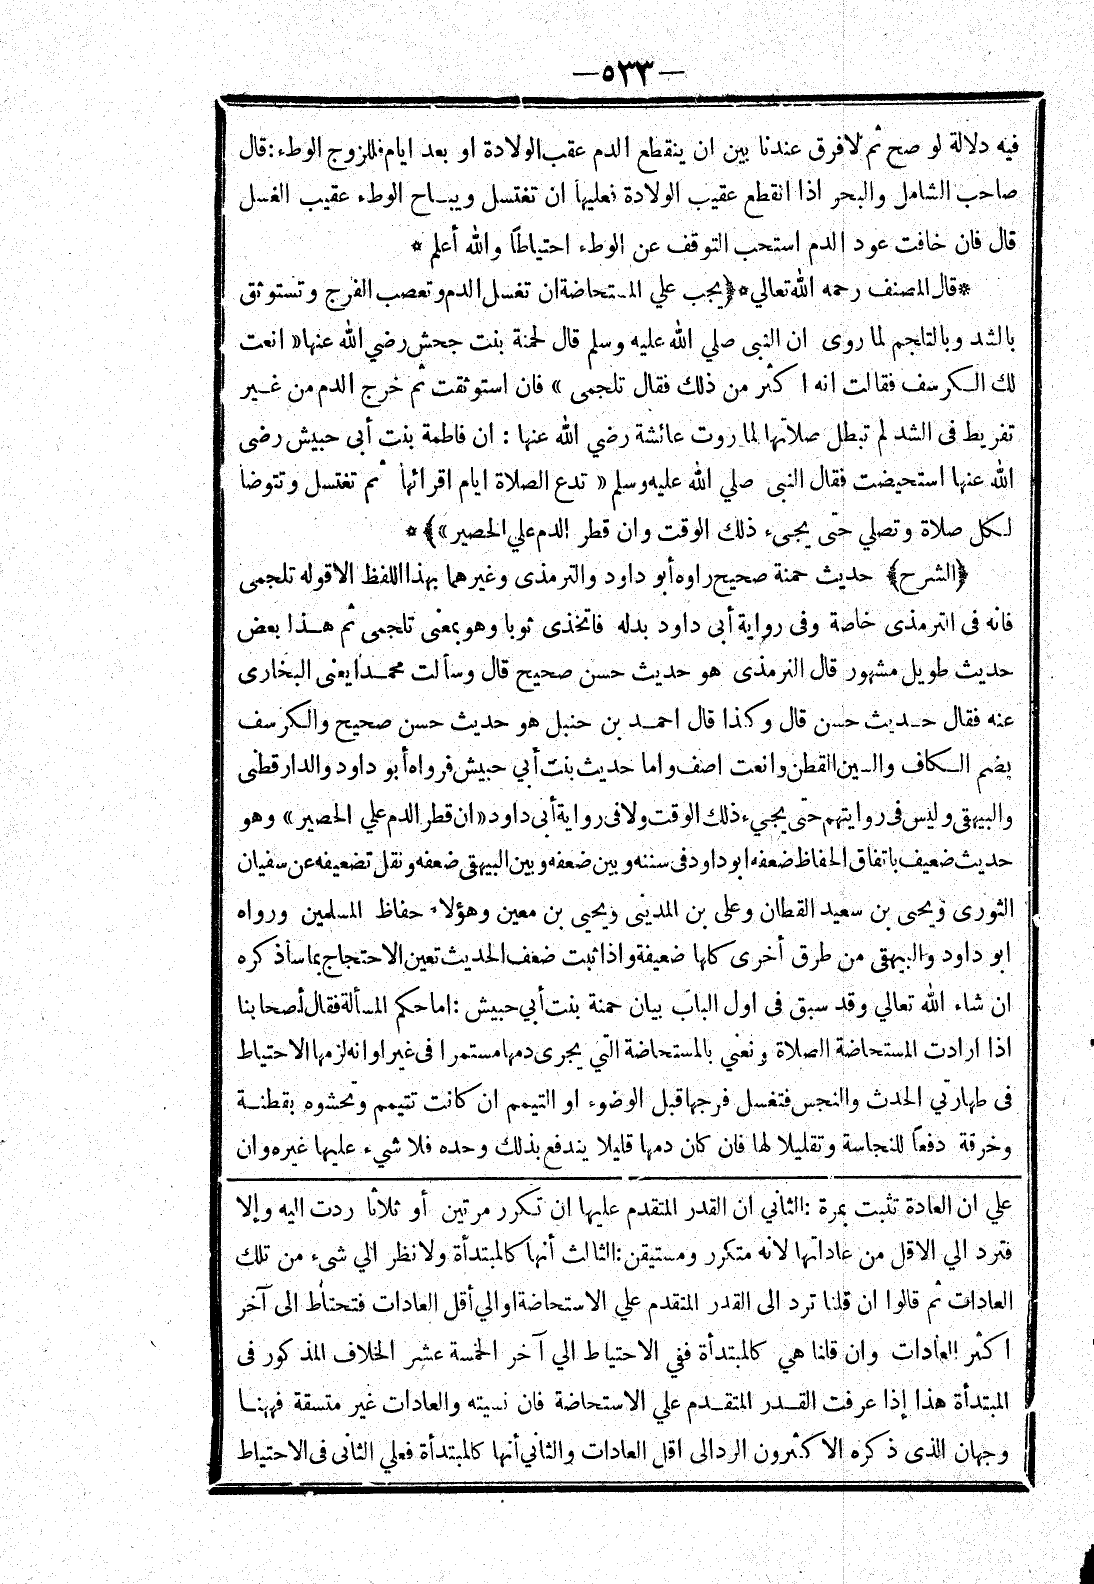 —٥٣٣—
فيه دلالة لو صح ثم لا فرق عندنا بين ان ينقطع الدم عقب الولادة او بعد ايام فللزوج الوطء: قال
صاحب الشامل والبحر اذا انقطع عقيب الولادة فعليها ان تغتسل ويباح الوطء عقيب الغسل
قال فان خافت عود الدم استحب التوقف عن الوطء احتياطًا والله أعلم *
*قال المصنف رحمه الله تعالي* ﴿يجب علي المستحاضة ان تغسل الدم وتعصب الفرج وتستوثق
بالشد وبالتلجم لما روى ان النبى صلي الله عليه وسلم قال لحمنة بنت جحش رضي الله عنها « انعت
لك الكرسف فقالت انه اكثر من ذلك فقال تلجمى » فان استوثقت ثم خرج الدم من غير
تفريط فى الشد لم تبطل صلاتها لما روت عائشة رضي الله عنها : ان فاطمة بنت أبى حبيش رضى
الله عنها استحيضت فقال النبى صلي الله عليه وسلم « تدع الصلاة ايام اقرائها ثم تغتسل وتتوضا
لكل صلاة وتصلي حتى يجىء ذلك الوقت وان قطر الدم علي الحصير»﴾*
﴿الشرح﴾ حديث حمنة صحيح رواه أبو داود والترمذى وغيرهما بهذا اللفظ الا قوله تلجمى
فانه فى الترمذى خاصة وفى رواية أبى داود بدله فاتخذى ثوبا وهو بمعنى تلجمى ثم هذا بعض
حديث طويل مشهور قال الترمذى هو حديث حسن صحيح قال وسألت محمدا يعنى البخارى
عنه فقال حديث حسن قال وكذا قال احمد بن حنبل هو حديث حسن صحيح والكرسف
بضم الكاف والسين القطن وانعت اصف واما حديث بنت أبي حبيش فرواه أبو داود والدارقطنى
والبيهقى وليس فى روايتهم حتى يجيء ذلك الوقت ولا فى رواية أبى داود «ان قطر الدم علي الحصير» وهو
حديث ضعيف باتفاق الحفاظ ضعفه ابو داود فى سننه وبين ضعفه وبين البيهقى ضعفه ونقل تضعيفه عن سفيان
الثورى ويحيى بن سعيد القطان وعلى بن المدينى ويحيى بن معين وهؤلاء حفاظ المسلمين ورواه
ابو داود والبيهقى من طرق أخرى كلها ضعيفة واذا ثبت ضعف الحديث تعين الاحتجاج بما سأذكره
ان شاء الله تعالي وقد سبق فى اول الباب بيان حمنة بنت أبي حبيش : اما حكم المسألة فقال أصحابنا
اذا ارادت المستحاضة الصلاة ونعني بالمستحاضة التي يجرى دمها مستمرا فى غير اوانه لزمها الاحتياط
فى طهارتي الحدث والنجس فتغسل فرجها قبل الوضوء او التيمم ان كانت تتيمم وتحشوه بقطنة
وخرقة دفعًا للنجاسة وتقليلا لها فان كان دمها قليلا يندفع بذلك وحده فلا شيء عليها غيره وان
علي ان العادة تثبت بمرة : الثاني ان القدر المتقدم عليها ان تكرر مرتين أو ثلاثا ردت اليه وإلا
فترد الي الاقل من عاداتها لانه متكرر ومستيقن: الثالث أنها كالمبتدأة ولا نظر الي شىء من تلك
العادات ثم قالوا ان قلنا ترد الى القدر المتقدم علي الاستحاضة او الي أقل العادات فتحتاط الى آخر
اكثر العادات وان قلنا هي كالمبتدأة ففي الاحتياط الي آخر الخمسة عشر الخلاف المذكور فى
المبتدأة هذا إذا عرفت القدر المتقدم علي الاستحاضة فان نسيته والعادات غير متسقة فههنا
وجهان الذى ذكره الاكثرون الرد الى اقل العادات والثاني أنها كالمبتدأة فعلي الثانى فى الاحتياط